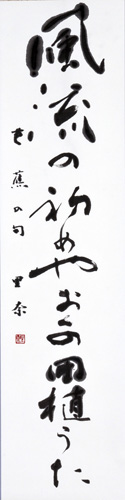 風流の初めやおくの田植うた
芭蕉の句 里奈